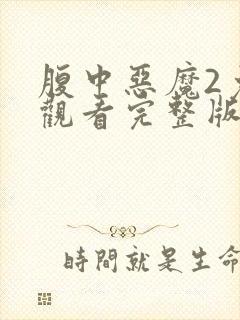 腹中惡魔2
觀看完整版
時間就是生命